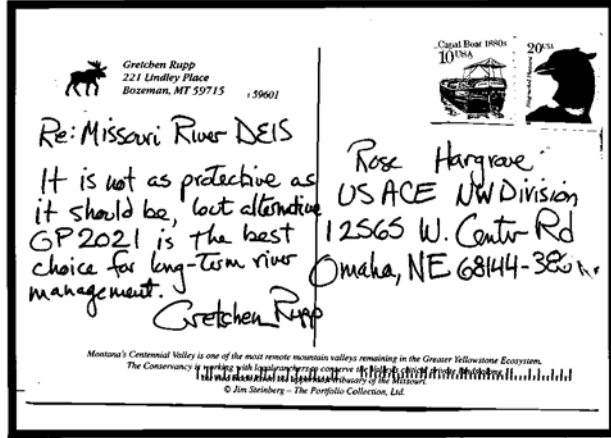 Gretchen Rupp
221 Lindley Place
Bozeman, MT 59715
59601
Canal Boat 1880s
10 USA
20 USA
Re: Missouri River DEIS
It is not as protective as
it should be, but alternative
GP2021 is the best
choice for long-term river
management.
Gretchen Rupp
Rose Hargrave
US ACE NW Division
12565 W. Center Rd
Omaha, NE 68144-38
Montana's Centennial Valley is one of the most remote mountain valleys remaining in the Greater Yellowstone Ecosystem.
The Conservancy is working with local ranchers to conserve the valley's critical private
tributary of the Missouri.
© Jim Steinberg – The Portfolio Collection, Ltd.